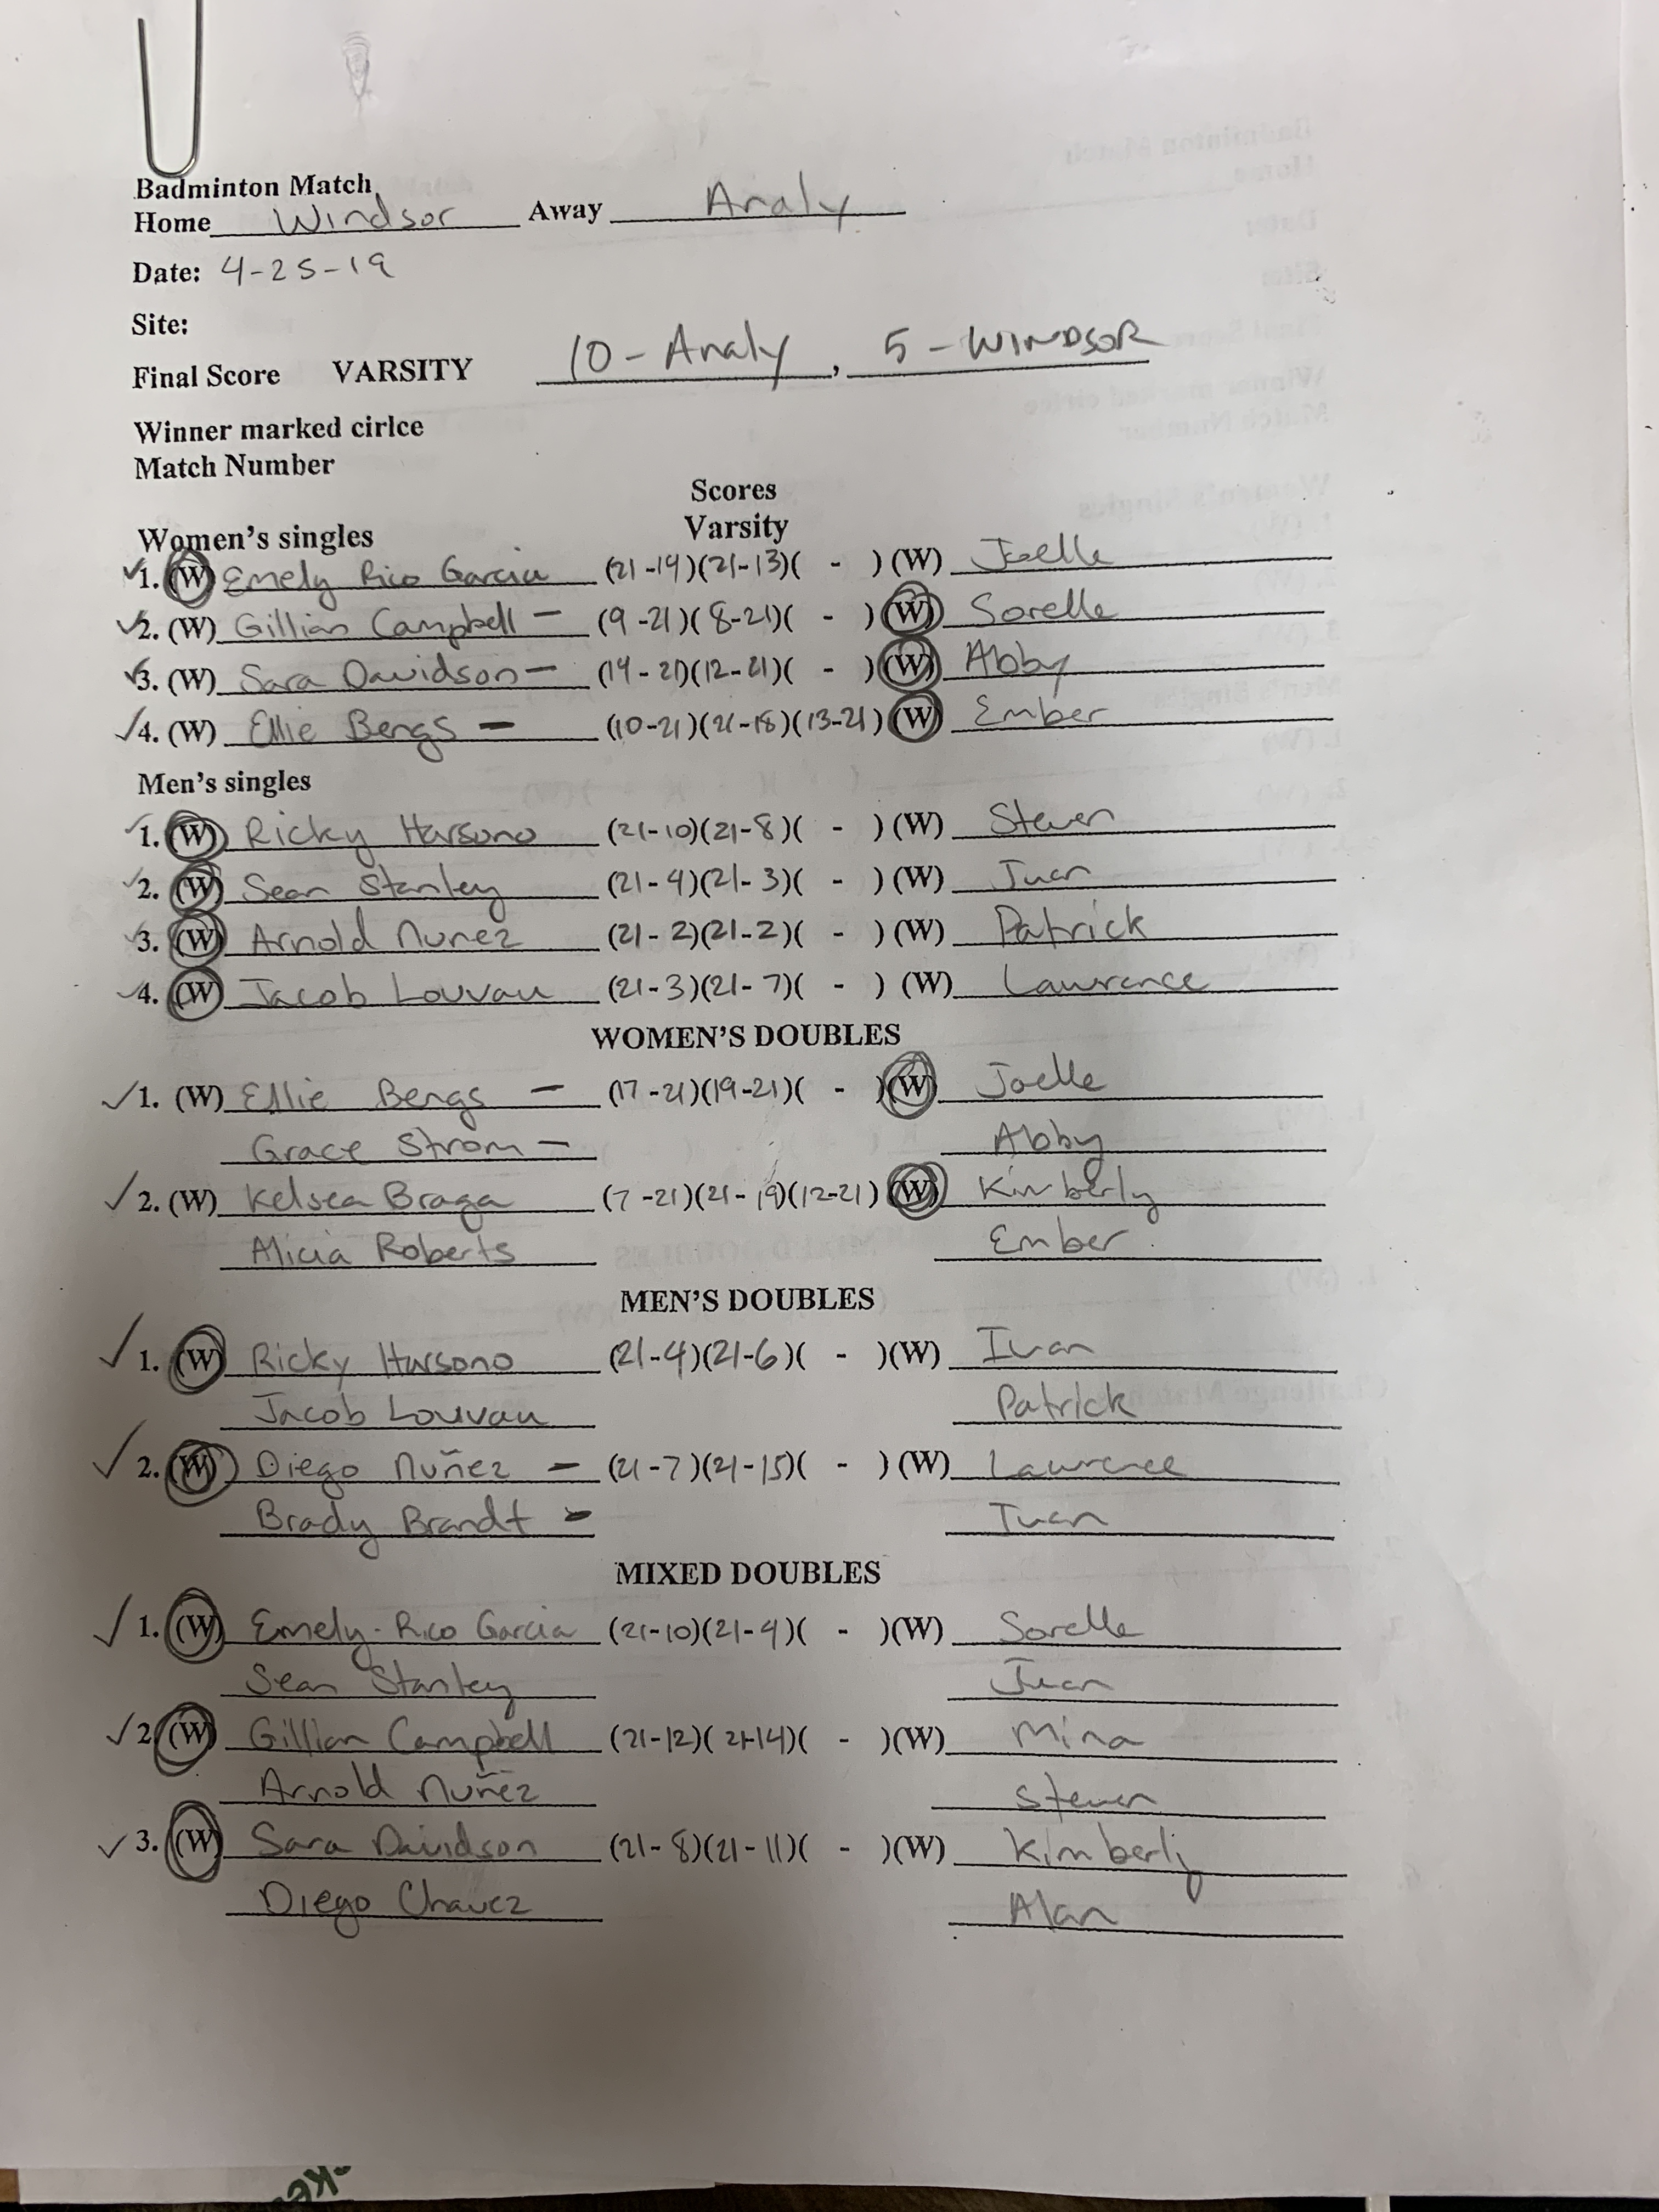 Badminton Match
Home Windsor Away Analy
Date: 4-25-19
Site:
Final Score VARSITY 10-Analy, 5-WINDSOR
Winner marked cirlce
Match Number
Scores
Women's singles Varsity
1. (W) Emely Rico Garcia (21-19)(21-13)( - ) (W) Joelle
2. (W) Gillian Campbell - (9-21)(8-21)( - ) (W) Sorelle
3. (W) Sara Davidson - (14-21)(12-21)( - ) (W) Abby
4. (W) Ellie Bengs - (10-21)(21-18)(13-21) (W) Ember
Men's singles
1. (W) Ricky Harsono (21-10)(21-8)( - ) (W) Steven
2. (W) Sean Stanley (21-4)(21-3)( - ) (W) Juan
3. (W) Arnold Nunez (21-2)(21-2)( - ) (W) Patrick
4. (W) Jacob Louvau (21-3)(21-7)( - ) (W) Lawrence
WOMEN'S DOUBLES
1. (W) Ellie Bengs - (17-21)(19-21)( - ) (W) Joelle
Grace Strom - Abby
2. (W) Kelsea Braga (7-21)(21-19)(12-21) (W) Kimberly
Alicia Roberts Ember
MEN'S DOUBLES
1. (W) Ricky Harsono (21-4)(21-6)( - )(W) Ivan
Jacob Louvau Patrick
2. (W) Diego Nuñez - (21-7)(21-15)( - ) (W) Lawrence
Brady Brandt - Juan
MIXED DOUBLES
1. (W) Emely-Rico Garcia (21-10)(21-9)( - )(W) Sorelle
Sean Stanley Juan
2. (W) Gillian Campbell (21-12)(21-14)( - )(W) Mina
Arnold Nuñez Steven
3. (W) Sara Davidson (21-8)(21-11)( - )(W) Kimberly
Diego Chavez Alan